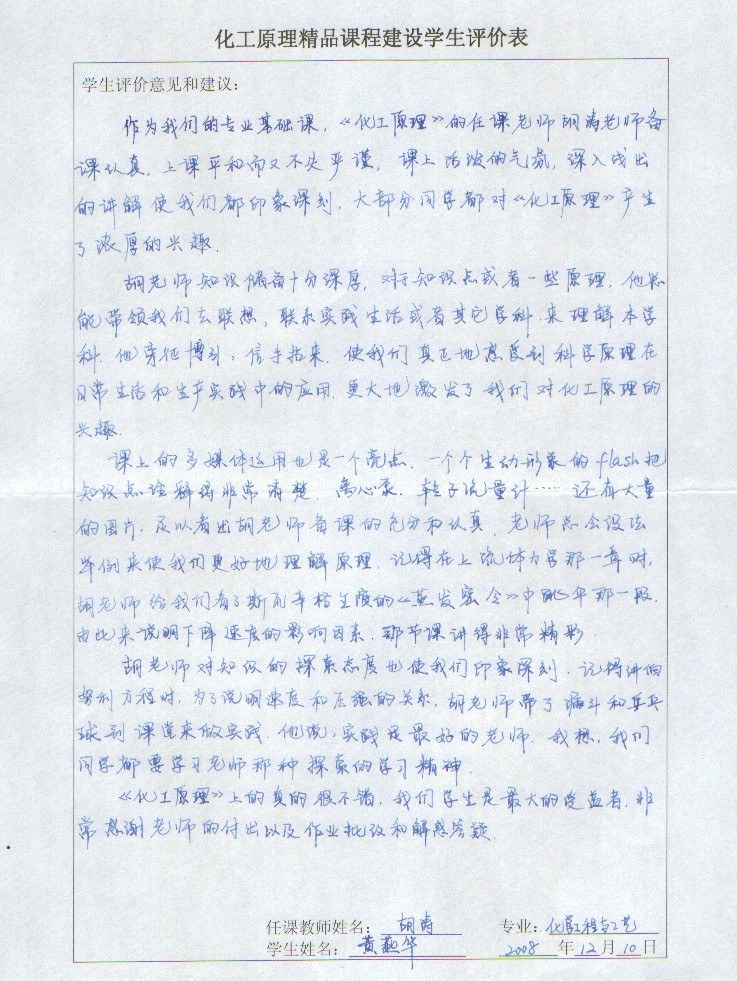 化工原理精品课程建设学生评价表
学生评价意见和建议：
作为我们的专业基础课，《化工原理》的任课老师胡涛老师备
课认真，上课平和而又不失严谨，课上活泼的气氛，深入浅出
的讲解使我们都印象深刻，大部分同学都对《化工原理》产生
了浓厚的兴趣．
胡老师知识储备十分深厚，对于知识点或者一些原理，他总
能带领我们去联想，联系实践生活或者其它学科来理解本学
科．他旁征博引，信手拈来，使我们真正地感受到科学原理在
日常生活和生产实践中的应用，更大地激发了我们对化工原理的
兴趣．
课上的多媒体运用也是一个亮点，一个个生动形象的flash把
知识点诠释得非常清楚，离心泵，转子流量计……还有大量
的图片，足以看出胡老师备课的充分和认真．老师总会设法
举例来使我们更好地理解原理．记得在上流体力学那一章时，
胡老师给我们看了斯瓦辛格主演的《蒸发密令》中跳伞那一段，
由此来说明下降速度的影响因素．那节课讲得非常精彩．
胡老师对知识的探索态度也使我们印象深刻．记得讲伯
努利方程时，为了说明速度和压强的关系，胡老师带了漏斗和乒乓
球到课堂来做实践．他说，实践是最好的老师．我想，我们
同学都要学习老师那种探索的学习精神．
《化工原理》上的真的很不错，我们学生是最大的受益者，非
常感谢老师的付出以及作业批改和解惑答疑．
任课教师姓名： 胡涛 专业：化学工程与工艺
学生姓名： 黄燕华 2008 年 12 月 10 日